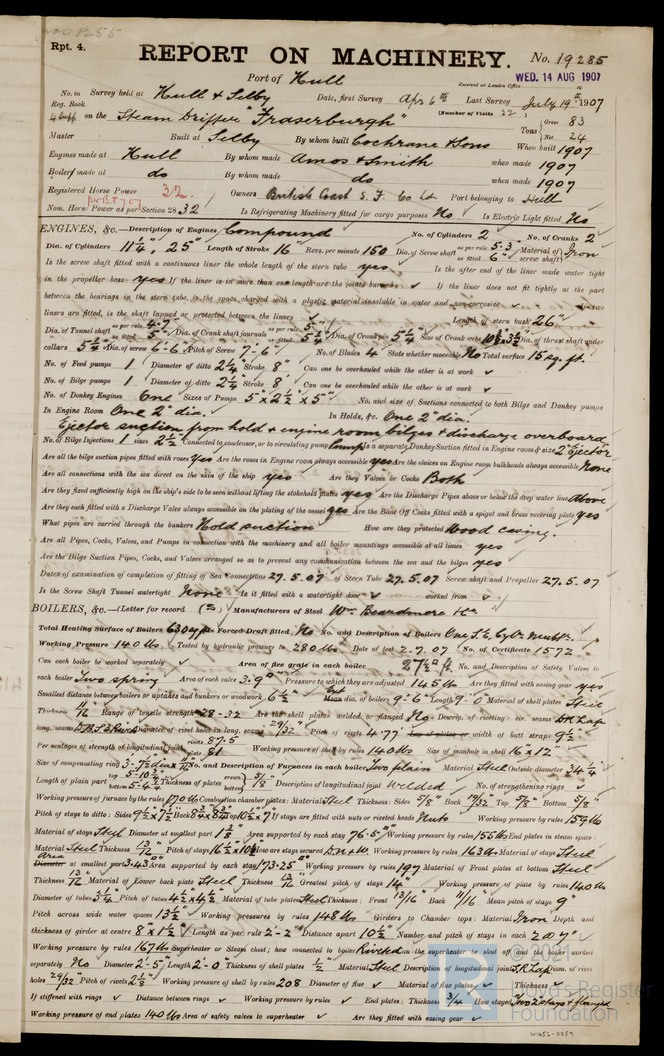 Rpt. 4.
REPORT ON MACHINERY.
No. 19285
Port of Hull
Received at London Office WED. 14 AUG 1907
No. in Survey held at Hull & Selby Date, first Survey Apr 6th Last Survey July 19th 1907
Reg. Book.
(Number of Visits 22)
4 Supp on the Steam Drifter "Fraserburgh"
Tons Gross 83 Net 24
Master Built at Selby By whom built Cochrane & Sons When built 1907
Engines made at Hull By whom made Amos & Smith when made 1907
Boilers made at do By whom made do when made 1907
Registered Horse Power Owners British Coast S. F. Co Ld Port belonging to Hull
Nom. Horse Power as per Section 28 32 Is Refrigerating Machinery fitted for cargo purposes No Is Electric Light fitted No
ENGINES, &c.—Description of Engines Compound No. of Cylinders 2 No. of Cranks 2
Dia. of Cylinders 11¼" - 25" Length of Stroke 16" Revs. per minute 150 Dia. of Screw shaft as per rule 5.3 as fitted 6" Material of screw shaft Iron
Is the screw shaft fitted with a continuous liner the whole length of the stern tube yes Is the after end of the liner made water tight
in the propeller boss yes If the liner is in more than one length are the joints burned If the liner does not fit tightly at the part
between the bearings in the stern tube, is the space charged with a plastic material insoluble in water and non-corrosive If two
liners are fitted, is the shaft lapped or protected between the liners Length of stern bush 26"
Dia. of Tunnel shaft as per rule 4.7 as fitted 5" Dia. of Crank shaft journals as per rule 5" as fitted 5¼" Dia. of Crank pin 5¼" Size of Crank webs 10⅜ x 3½ Dia. of thrust shaft under
collars 5¼" Dia. of screw 6'-6" Pitch of Screw 7'-6" No. of Blades 4 State whether moveable No Total surface 15 sq. ft.
No. of Feed pumps 1 Diameter of ditto 2¼" Stroke 8" Can one be overhauled while the other is at work
No. of Bilge pumps 1 Diameter of ditto 2¼" Stroke 8" Can one be overhauled while the other is at work
No. of Donkey Engines One Sizes of Pumps 5" x 2½" x 5" No. and size of Suctions connected to both Bilge and Donkey pumps
In Engine Room One 2" dia. In Holds, &c. One 2" dia.
Ejector suction from hold & engine room bilges & discharge overboard
No. of Bilge Injections 1 sizes 2½" Connected to condenser, or to circulating pump Is a separate Donkey Suction fitted in Engine room & size 2" Ejector
Are all the bilge suction pipes fitted with roses Yes Are the roses in Engine room always accessible yes Are the sluices on Engine room bulkheads always accessible None
Are all connections with the sea direct on the skin of the ship yes Are they Valves or Cocks Both
Are they fixed sufficiently high on the ship's side to be seen without lifting the stokehold plates yes Are the Discharge Pipes above or below the deep water line above
Are they each fitted with a Discharge Valve always accessible on the plating of the vessel yes Are the Blow Off Cocks fitted with a spigot and brass covering plate yes
What pipes are carried through the bunkers Hold suction How are they protected Wood casing.
Are all Pipes, Cocks, Valves, and Pumps in connection with the machinery and all boiler mountings accessible at all times yes
Are the Bilge Suction Pipes, Cocks, and Valves arranged so as to prevent any communication between the sea and the bilges yes
Dates of examination of completion of fitting of Sea Connections 27.5.07 of Stern Tube 27.5.07 Screw shaft and Propeller 27.5.07
Is the Screw Shaft Tunnel watertight None Is it fitted with a watertight door worked from
BOILERS, &c.—(Letter for record (S)) Manufacturers of Steel Wm Beardmore & Co
Total Heating Surface of Boilers 630 sq ft Is Forced Draft fitted No No. and Description of Boilers One S.E. Cyl.
Working Pressure 140 lbs Tested by hydraulic pressure to 280 lbs Date of test 2.7.07 No. of Certificate 1572
Can each boiler be worked separately Area of fire grate in each boiler 27½ ft No. and Description of Safety Valves to
each boiler Two spring Area of each valve 3.9" Pressure to which they are adjusted 145 lbs Are they fitted with easing gear yes
Smallest distance between boilers or uptakes and bunkers or woodwork 6½" Mean dia. of boilers 9'-6" Length 9'-0" Material of shell plates Steel
Thickness 11/16 Range of tensile strength 28-32 Are the shell plates welded or flanged No Descrip. of riveting: cir. seams D.R. Lap
long. seams Diameter of rivet holes in long. seams 29/32 Pitch of rivets 4.77 Lap of plates or width of butt straps 9½"
Per centages of strength of longitudinal joint rivets 87.5 plate 81 Working pressure of shell by rules 140 lbs Size of manhole in shell 16" x 12"
Size of compensating ring No. and Description of Furnaces in each boiler Two plain Material Steel Outside diameter 34¼"
Length of plain part top 5'-10¾" bottom 5'-4¾" Thickness of plates crown bottom Description of longitudinal joint welded No. of strengthening rings
Working pressure of furnace by the rules 170 lbs Combustion chamber plates: Material Steel Thickness: Sides 5/8" Back 19/32 Top 5/8" Bottom 5/8"
Pitch of stays to ditto: Sides 9½ x 7½ Back Top If stays are fitted with nuts or riveted heads Nuts Working pressure by rules 159 lbs
Material of stays Steel Diameter at smallest part 1⅜ Area supported by each stay 76.5" Working pressure by rules 155 lbs End plates in steam space:
Material Steel Thickness 13/16 Pitch of stays How are stays secured D.N & W. Working pressure by rules 163 lbs Material of stays Steel
Area Diameter at smallest part 3.43" Area supported by each stay 173.25" Working pressure by rules 197 Material of Front plates at bottom Steel
Thickness 13/16 Material of Lower back plate Steel Thickness 13/16 Greatest pitch of stays 14" Working pressure of plate by rules 140 lbs
Diameter of tubes 3¼" Pitch of tubes 4½ x 4½ Material of tube plates Steel Thickness: Front 13/16 Back 11/16 Mean pitch of stays 9"
Pitch across wide water spaces 13½" Working pressures by rules 148 lbs Girders to Chamber tops: Material Iron Depth and
thickness of girder at centre 8 x 1½" Length as per rule 2'-2" Distance apart 10½" Number and pitch of stays in each 2 @ 7"
Working pressure by rules 167 lbs Superheater or Steam chest; how connected to boiler Riveted Can the superheater be shut off and the boiler worked
separately No Diameter 2'-5" Length 2'-0" Thickness of shell plates ½" Material Steel Description of longitudinal joint S.R. Lap Diam. of rivet
holes 29/32 Pitch of rivets 2½" Working pressure of shell by rules 208 Diameter of flue Material of flue plates Thickness
If stiffened with rings Distance between rings Working pressure by rules End plates: Thickness 3/4" How stayed Two 2 stays & flanged
Working pressure of end plates 140 lbs Area of safety valves to superheater Are they fitted with easing gear
© 2021
Lloyd's Register
Foundation
W452-0059